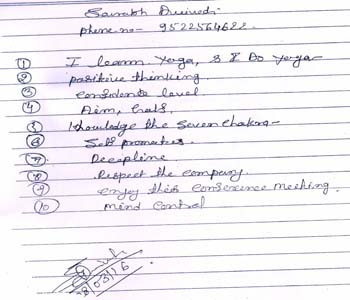 Saurabh Dwivedi
phone no- 9522564622
① I learn Yoga, & I Do yoga-
② positive thinking
③ confidents level
④ Aim, Goals,
⑤ Knowledge the seven chakra-
⑥ Self promotes.
⑦ Decepline
⑧ Respect the company.
⑨ enjoy this conserence meeting.
⑩ mind control